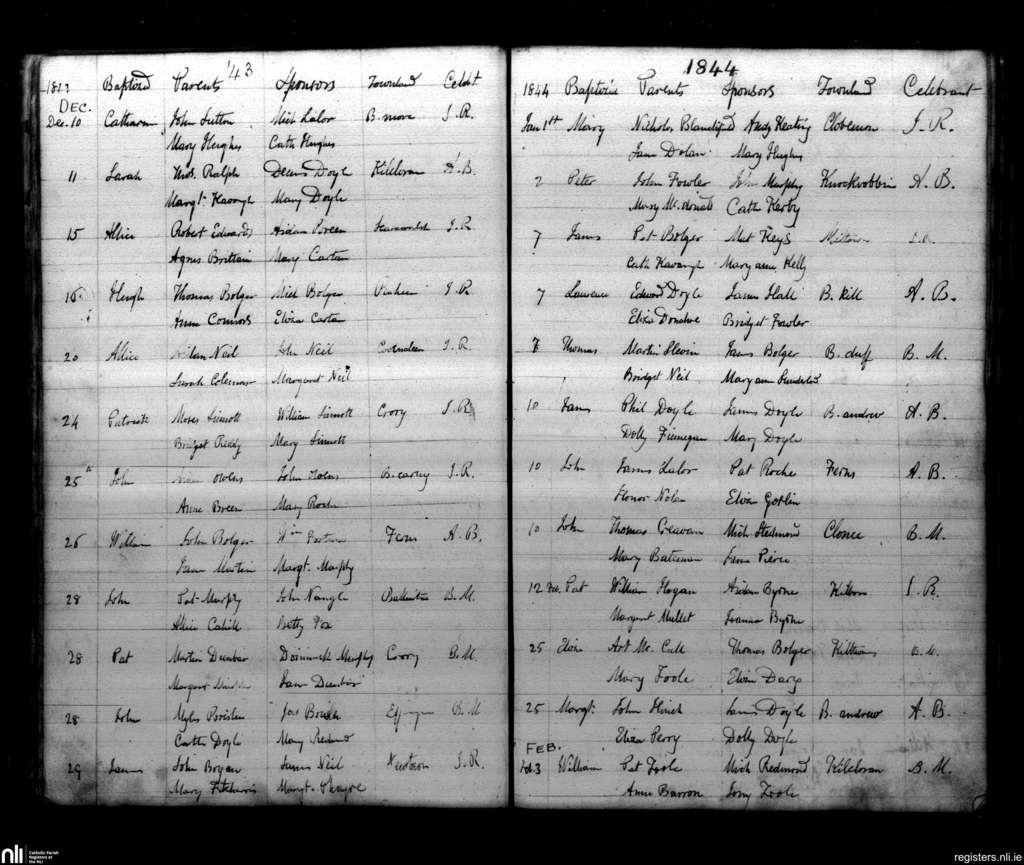 1843 Baptized Parents '43 Sponsors Townland Celebt.
DEC.
Dec. 10 Catharin John Sutton Mich Lalor B. more J. R.
Mary Hughes Cath Hughes
11 Sarah Thos. Ralph Denis Doyle Killbran A. B.
Margt. Kavangh Mary Doyle
15 Allice Robert Edwards Breen J. R.
Agnes Brittan Mary Carton
16 Hugh Thomas Bolger Mich Bolger J. R.
Ann Connors Eliza Carton
20 Allice Neil John Neil J. R.
Sarah Coleman Margaret Neil
24 Patrick Moses Sinnott William Sinnott Crory J. R.
Bridget Reddy Mary Sinnott
25 John Owens John Owens B. carny J. R.
Anne Breen Mary Roche
26 William John Bolger Wm Ferns A. B.
Jane Martin Margt. Murphy
28 John Pat Murphy John Nangle B. M.
Allice Cahill Betty Fox
28 Pat Martin Dunbar Dominick Murphy Crory B. M.
Margaret Jane Dunbar
28 John Myles Breslin Jas B. M.
Cath Doyle Mary Redmond
29 James John Bryan James Neil Newtown J. R.
Mary Fitzharris Margt.
1844
1844 Baptized Parents Sponsors Townland Celebrant
Jan 1st Mary Nicholas Andy Keating Clobemon J. R.
Jane Dolan Mary Hughes
2 Peter John Fowler John Murphy Knockrobbin A. B.
Mary McDonald Cath Kerby
7 James Pat Bolger Mat Keys Miltown
Cath Kavangh Mary anne Kelly
7 Laurence Edward Doyle James Hall B. Kill A. B.
Eliza Donahoe Bridget Fowler
7 Thomas Martin Slevin James Bolger B. duff B. M.
Bridget Neil Mary ann
10 James Phil Doyle James Doyle B. andrew A. B.
Dolly Finnegan Mary Doyle
10 John James Lalor Pat Roche Ferns A. B.
Honor Nolan Eliza
10 John Thomas Mich Redmond Clonee B. M.
Mary Bateman Jane Pierce
12 Pat William Hogan Aidan Byrne J. R.
Margaret Mullet Joanna Byrne
25 Art Mc. Thomas Bolger B. M.
Mary Toole Eliza Darcy
25 Margt. John Hinch James Doyle B. andrew A. B.
Eliza Perry Dolly Doyle
FEB.
Feb. 3 William Pat Toole Mich Redmond Kilcloran B. M.
Anne Barron Toole
nli Catholic Parish
Registers at
the NLI
registers.nli.ie